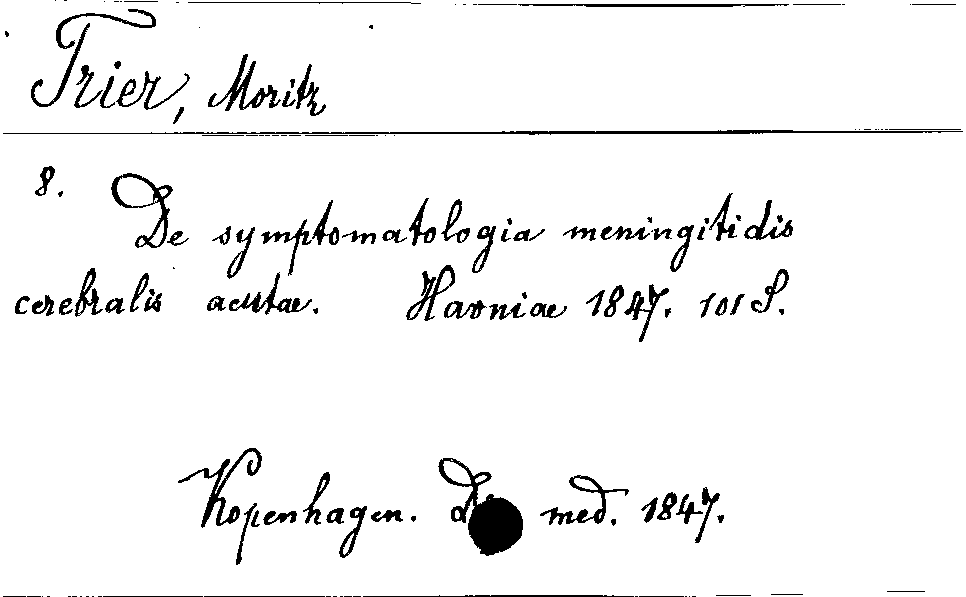 Trier, Moritz
8. De symptomatologia meningitidis
cerebralis acutae. Havniae 1847. 101 S.
Kopenhagen. med. 1847.